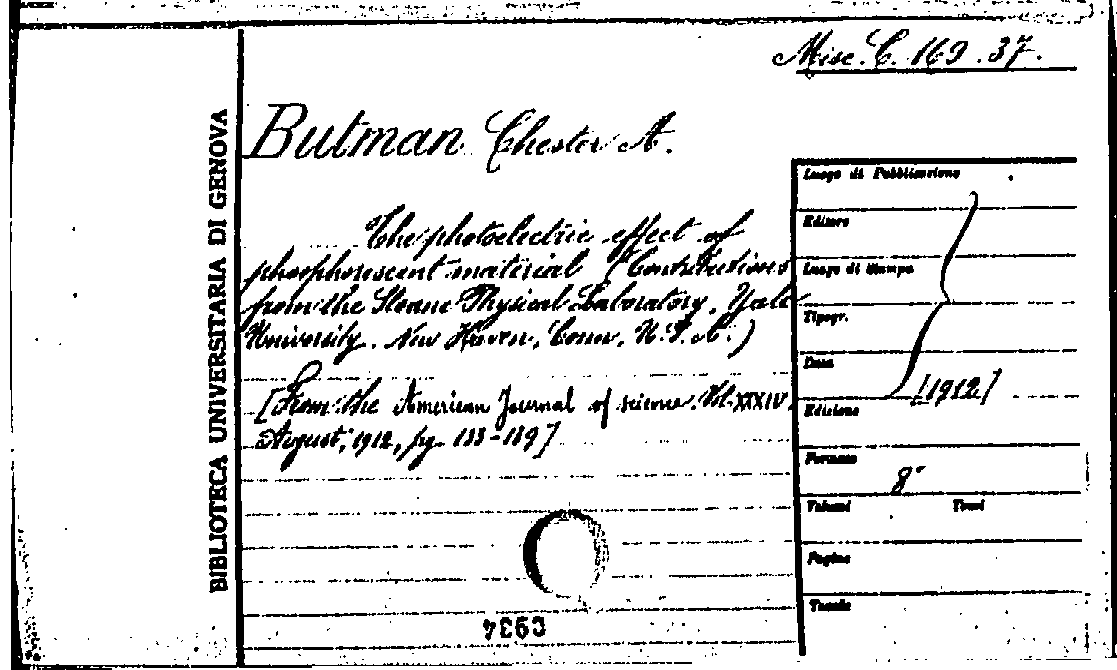 Misc. C. 169.37.
BIBLIOTECA UNIVERSITARIA DI GENOVA
Butman Chester A.
The photoelectric effect of
phosphorescent material (Contributions
from the Sloane Physical Laboratory, Yale
University. New Haven, Conn. U.S.A.)
[From the American Journal of science. Vol. XXXIV.
August, 1912, pg. 133-139]
Luogo di Pubblicazione
Editore
Luogo di Stampa
Tipogr.
Data
[1912]
Edizione
Formato
8°
Volumi Tomi
Pagine
Tavole
C934